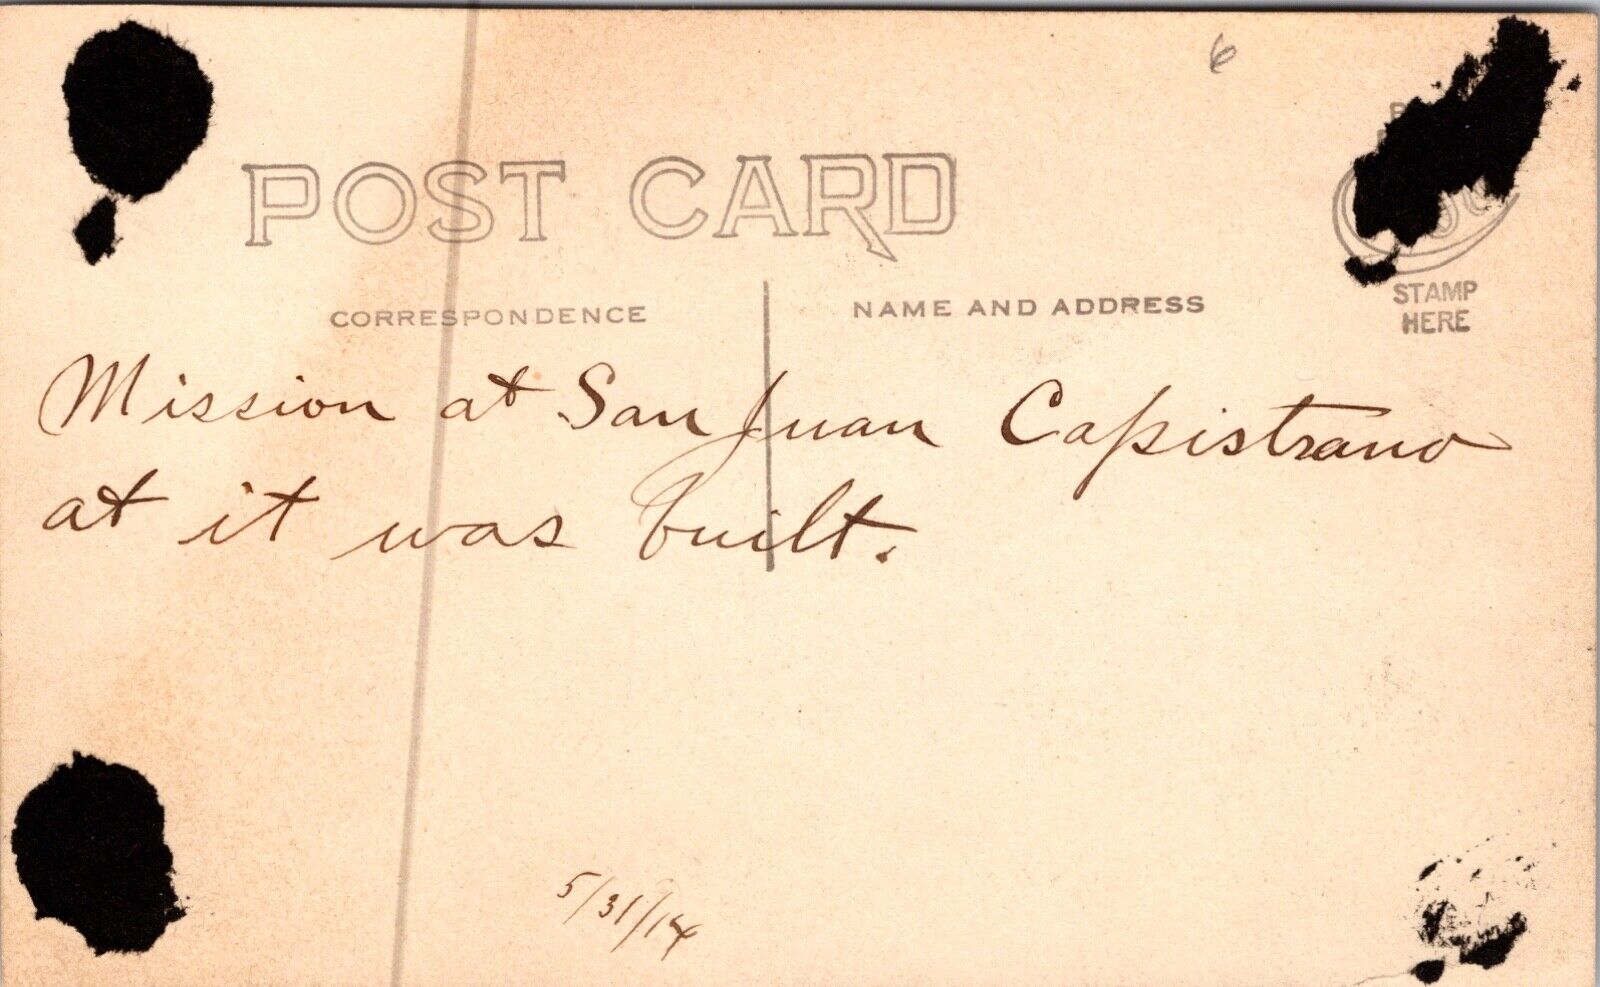 6
POST CARD
CORRESPONDENCE
NAME AND ADDRESS
STAMP
HERE
Mission at San Juan Capistrano
at it was built.
5/31/14